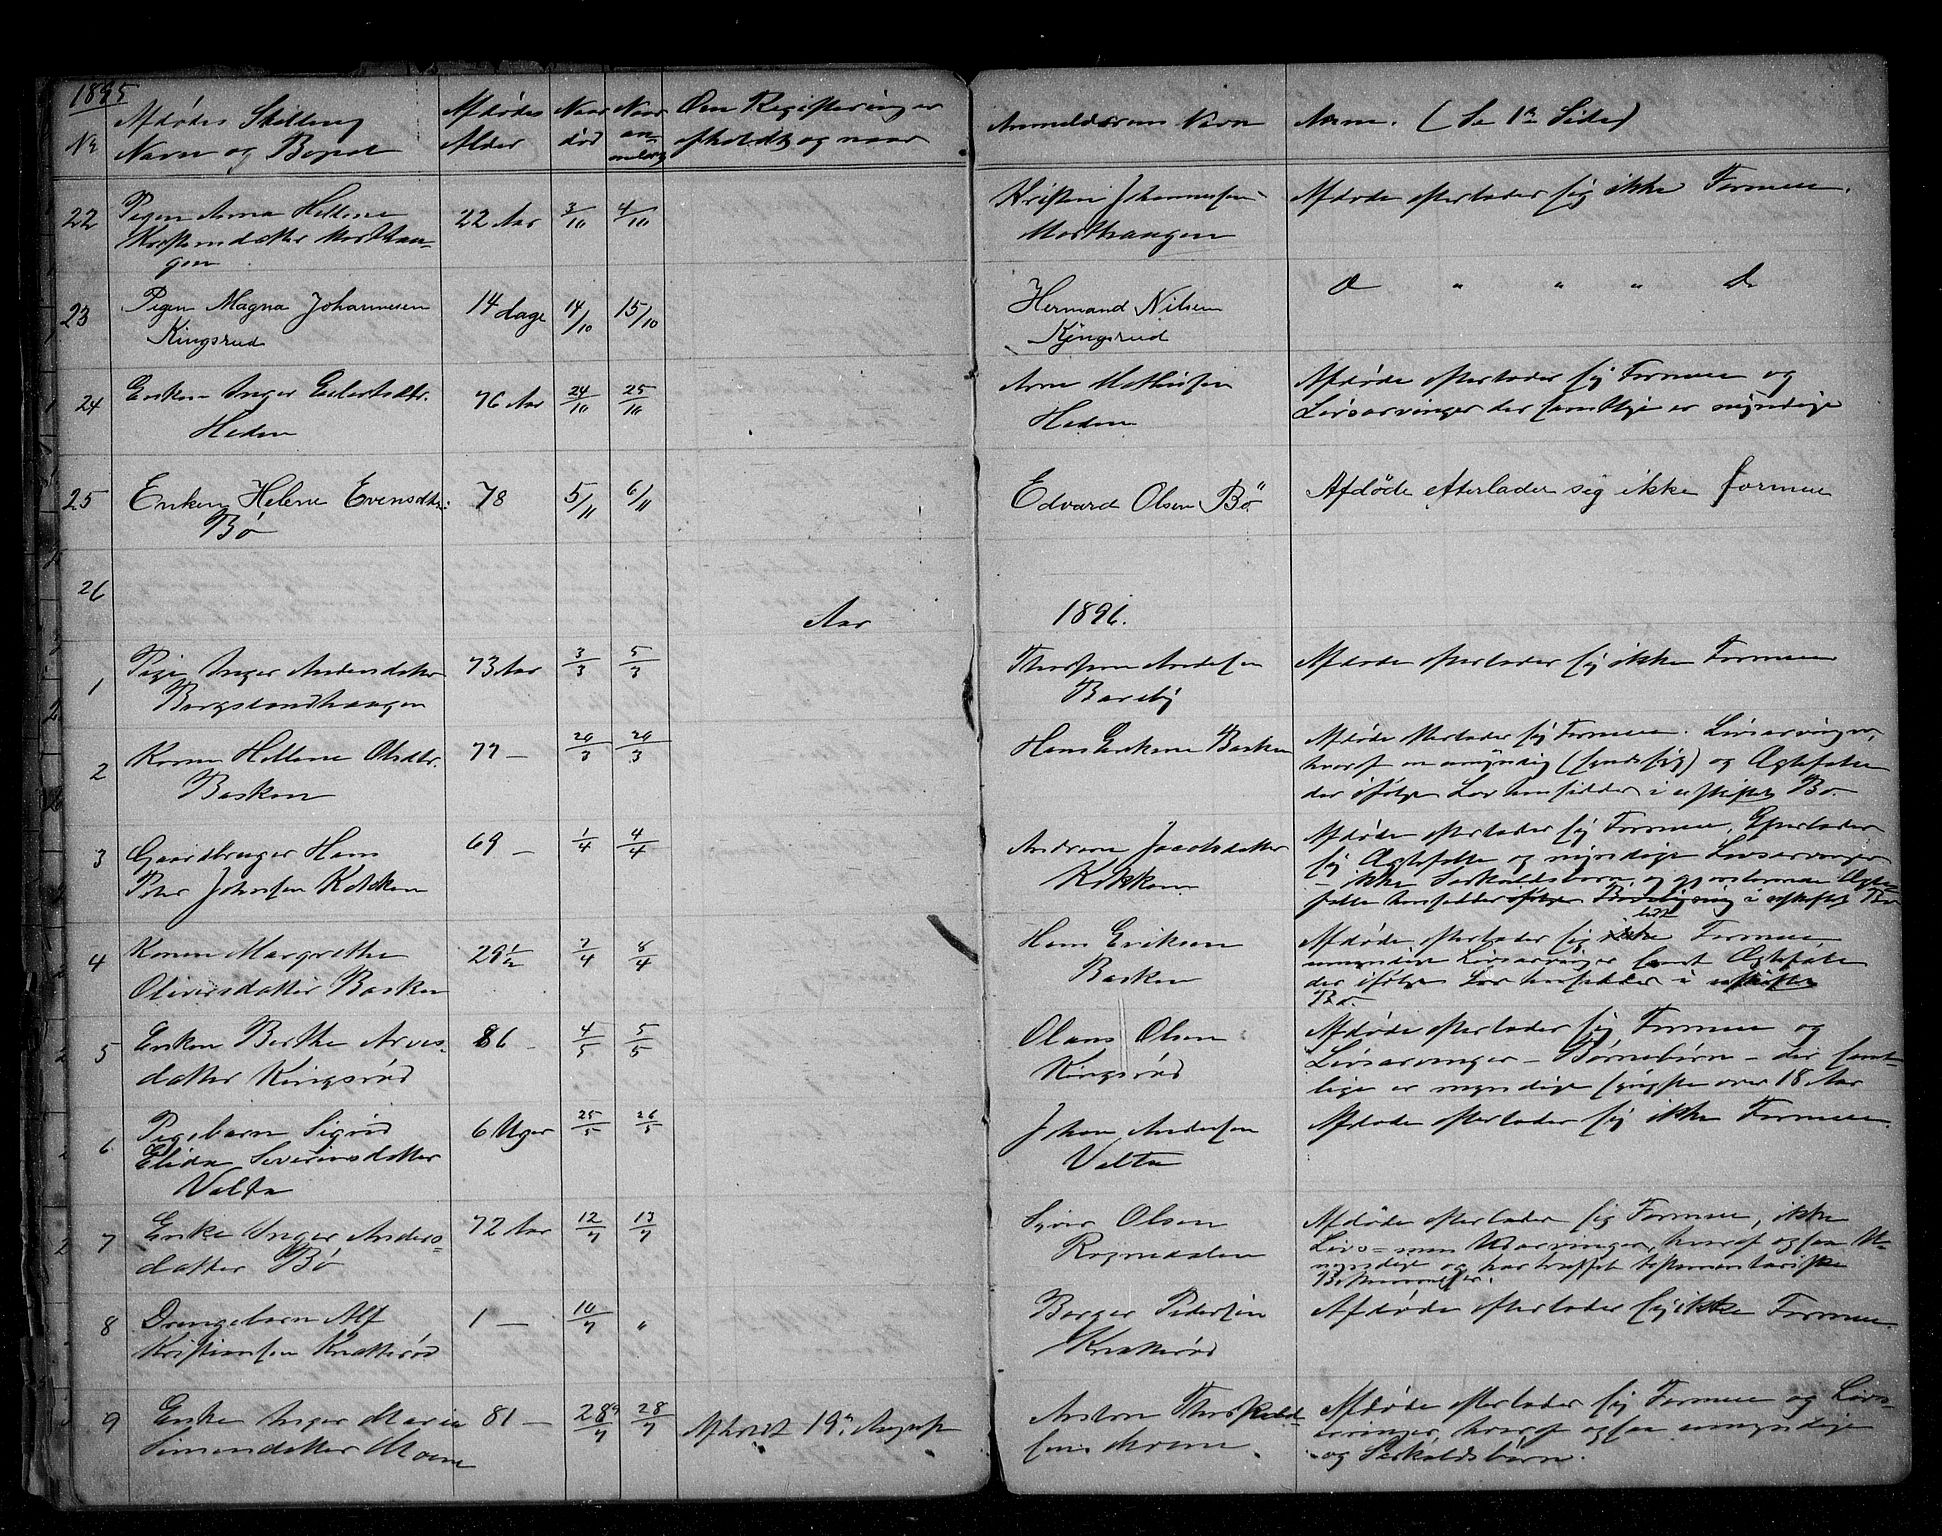 1895
No Afdødes Stilling Navn og Bopæl Afdødes Alder Naar død Naar anmeldt Om Registrering er afholdt og naar Anmelderens Navn Anm. (Se 1ste Side)
22 Pigen Anna Hellene 22 Aar 3/10 4/10 Kristen Johannesen Afdøde efterlader sig ikke Formue.
Kristensdatter Morthaugen Morthaugen
23 Pigen Magna Johannesen 14 dage 14/10 15/10 Hermand Nilsen d " " " D
Kingsrud Kjingsrud
24 Enken Inger Eilertsdtr. 76 Aar 24/10 25/10 Arne Mathisen Afdøde efterlader sig Formue og
Heden Heden Livsarvinger der samtlige er myndige
25 Enken Helene Evensdtr. 78 5/11 6/11 Edvard Olsen Bö Afdöde efterlader sig ikke formue
Bø
26
Aar 1896.
1 Pige Inger Andersdatter 73 Aar 3/3 5/3 Andersen Afdøde efterlader sig ikke Formue
Bergslandhaugen Bareby
2 Karen Hellene Olsdtr. 77 — 20/3 20/3 Hans Eriksen Basken Afdøde efterlader sig Formue. Livsarvinger,
Basken hvoraf en umyndig (sindssyg) og Ægtefælle
der ifølge Lov hensidder i uskiftet Bo.
3 Gaardbruger Hans 69 — 1/4 4/4 Andrea Jacobsdatter Afdøde efterlader sig Formue. Efterlader
Peter Johnsen Kokken Kokken sig Ægtefælle og myndige Livsarvinger
— ikke Særkuldsbørn og gjenlevende Ægtefælle hensidder ifølge Bevilgning i uskiftet Bo
4 Karen Margrethe 29 1/2 7/4 8/4 Hans Eriksen Afdøde efterlader sig ikke lidt Formue
Oliversdatter Basken Basken umyndige Livsarvinger samt Ægtefælle
der ifølge Lov hensidder i uskiftet
Bo.
5 Enken Berthe Arvesdatter Kingsrød 86 — 4/5 5/5 Olaus Olsen Afdøde efterlader sig Formue og
Kingsrød Livsarvinger — Børnebørn — der samtlige er myndige yngste over 18 Aar
6 Pigebarn Sigrid 6 Uger 25/5 26/5 Johan Andersen Afdøde efterlader sig ikke Formue.
Elida Severinsdatter Valta
Valta
7 Enke Inger Anders- 72 Aar 12/7 13/7 Syver Olsen Afdøde efterlader sig Formue, ikke
datter Bø Rognedalen Livs- men Udarvinger, hvoraf ogsaa Umyndige og har truffet testamentariske
Bestemmelser.
8 Drengebarn Alf 1 — 10/7 " Borger Pedersen Afdøde efterlader sig ikke Formue.
Kristiansen Knatterød Knatterød
9 Enke Inger Maria 81 — 28/7 28/7 Afholdt 19de August Anton Thorkild- Afdøde efterlader sig Formue og Livs-
Simensdatter Moen sen Moen arvinger, hvoraf ogsaa umyndige
og Særkuldsbørn.